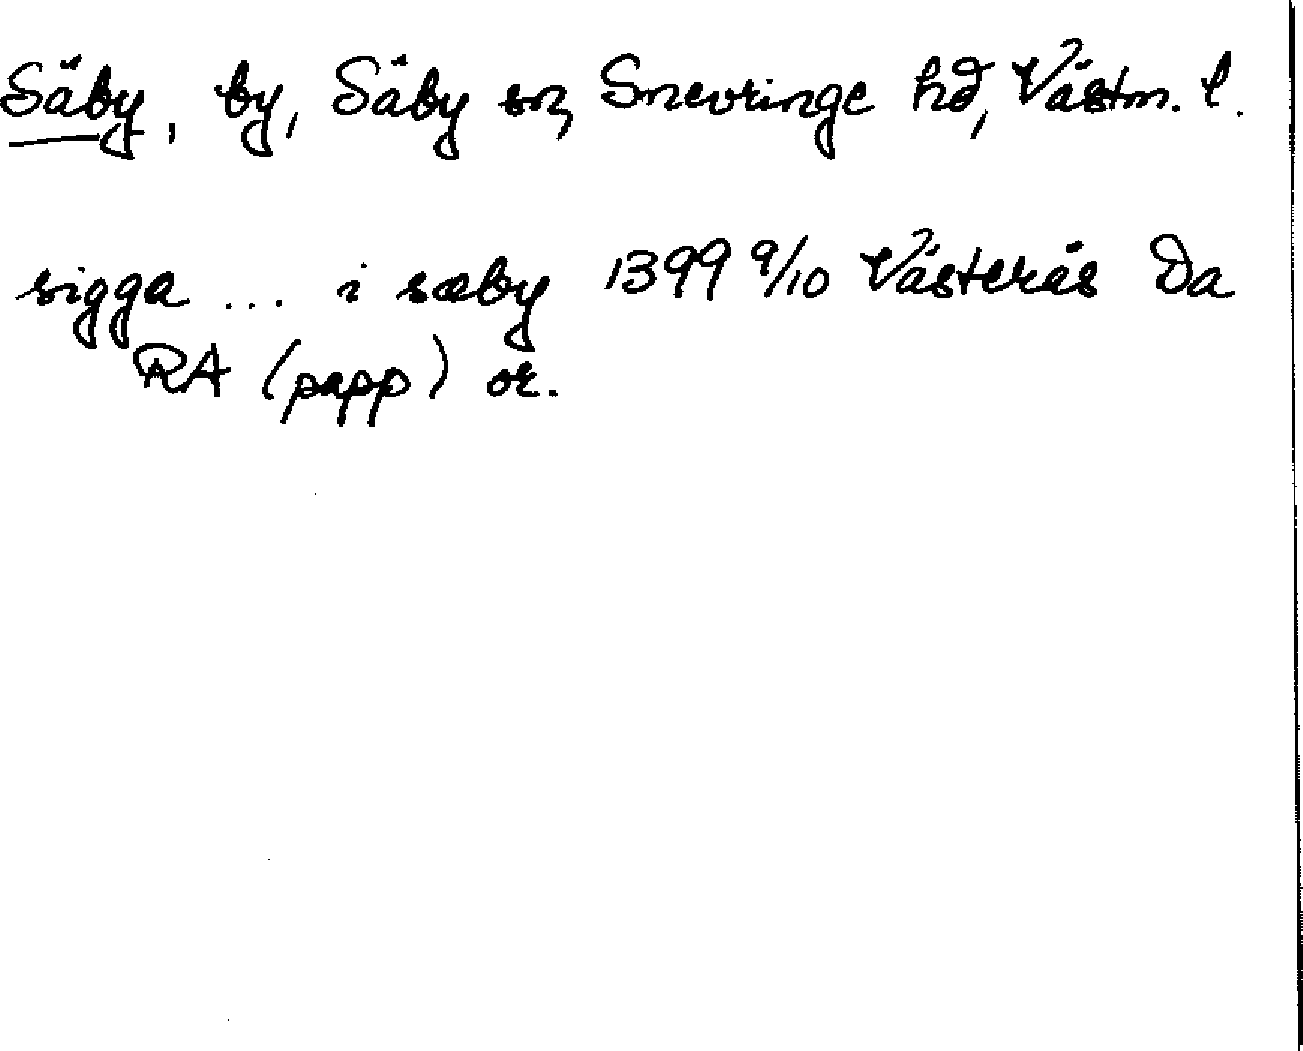 Säby, by, Säby sn, Snevringe hd, Västm. l.
sigga ... i sæby 1399 9/10 Västerås Da
RA (papp) or.